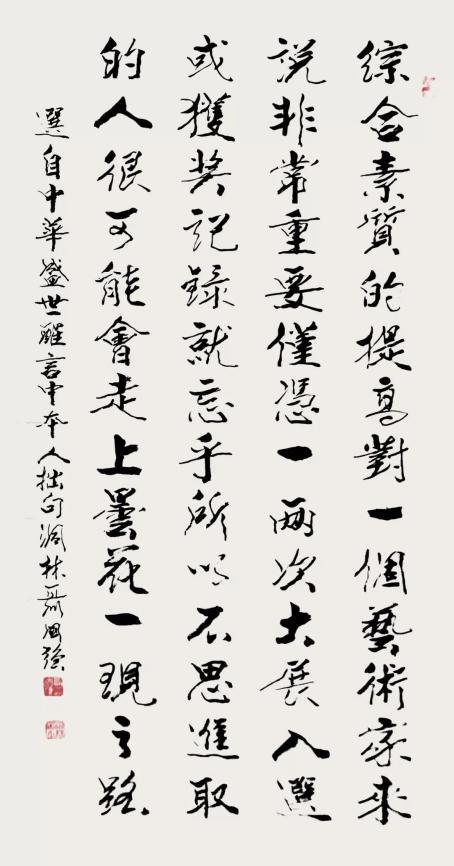 綜合素質的提高對一個藝術家來
說非常重要僅憑一兩次大展入選
或獲奬記錄就忘乎所以不思進取
的人很可能會走上曇花一現之路
選自中華盛世醒言中本人拙句澗林聶國強